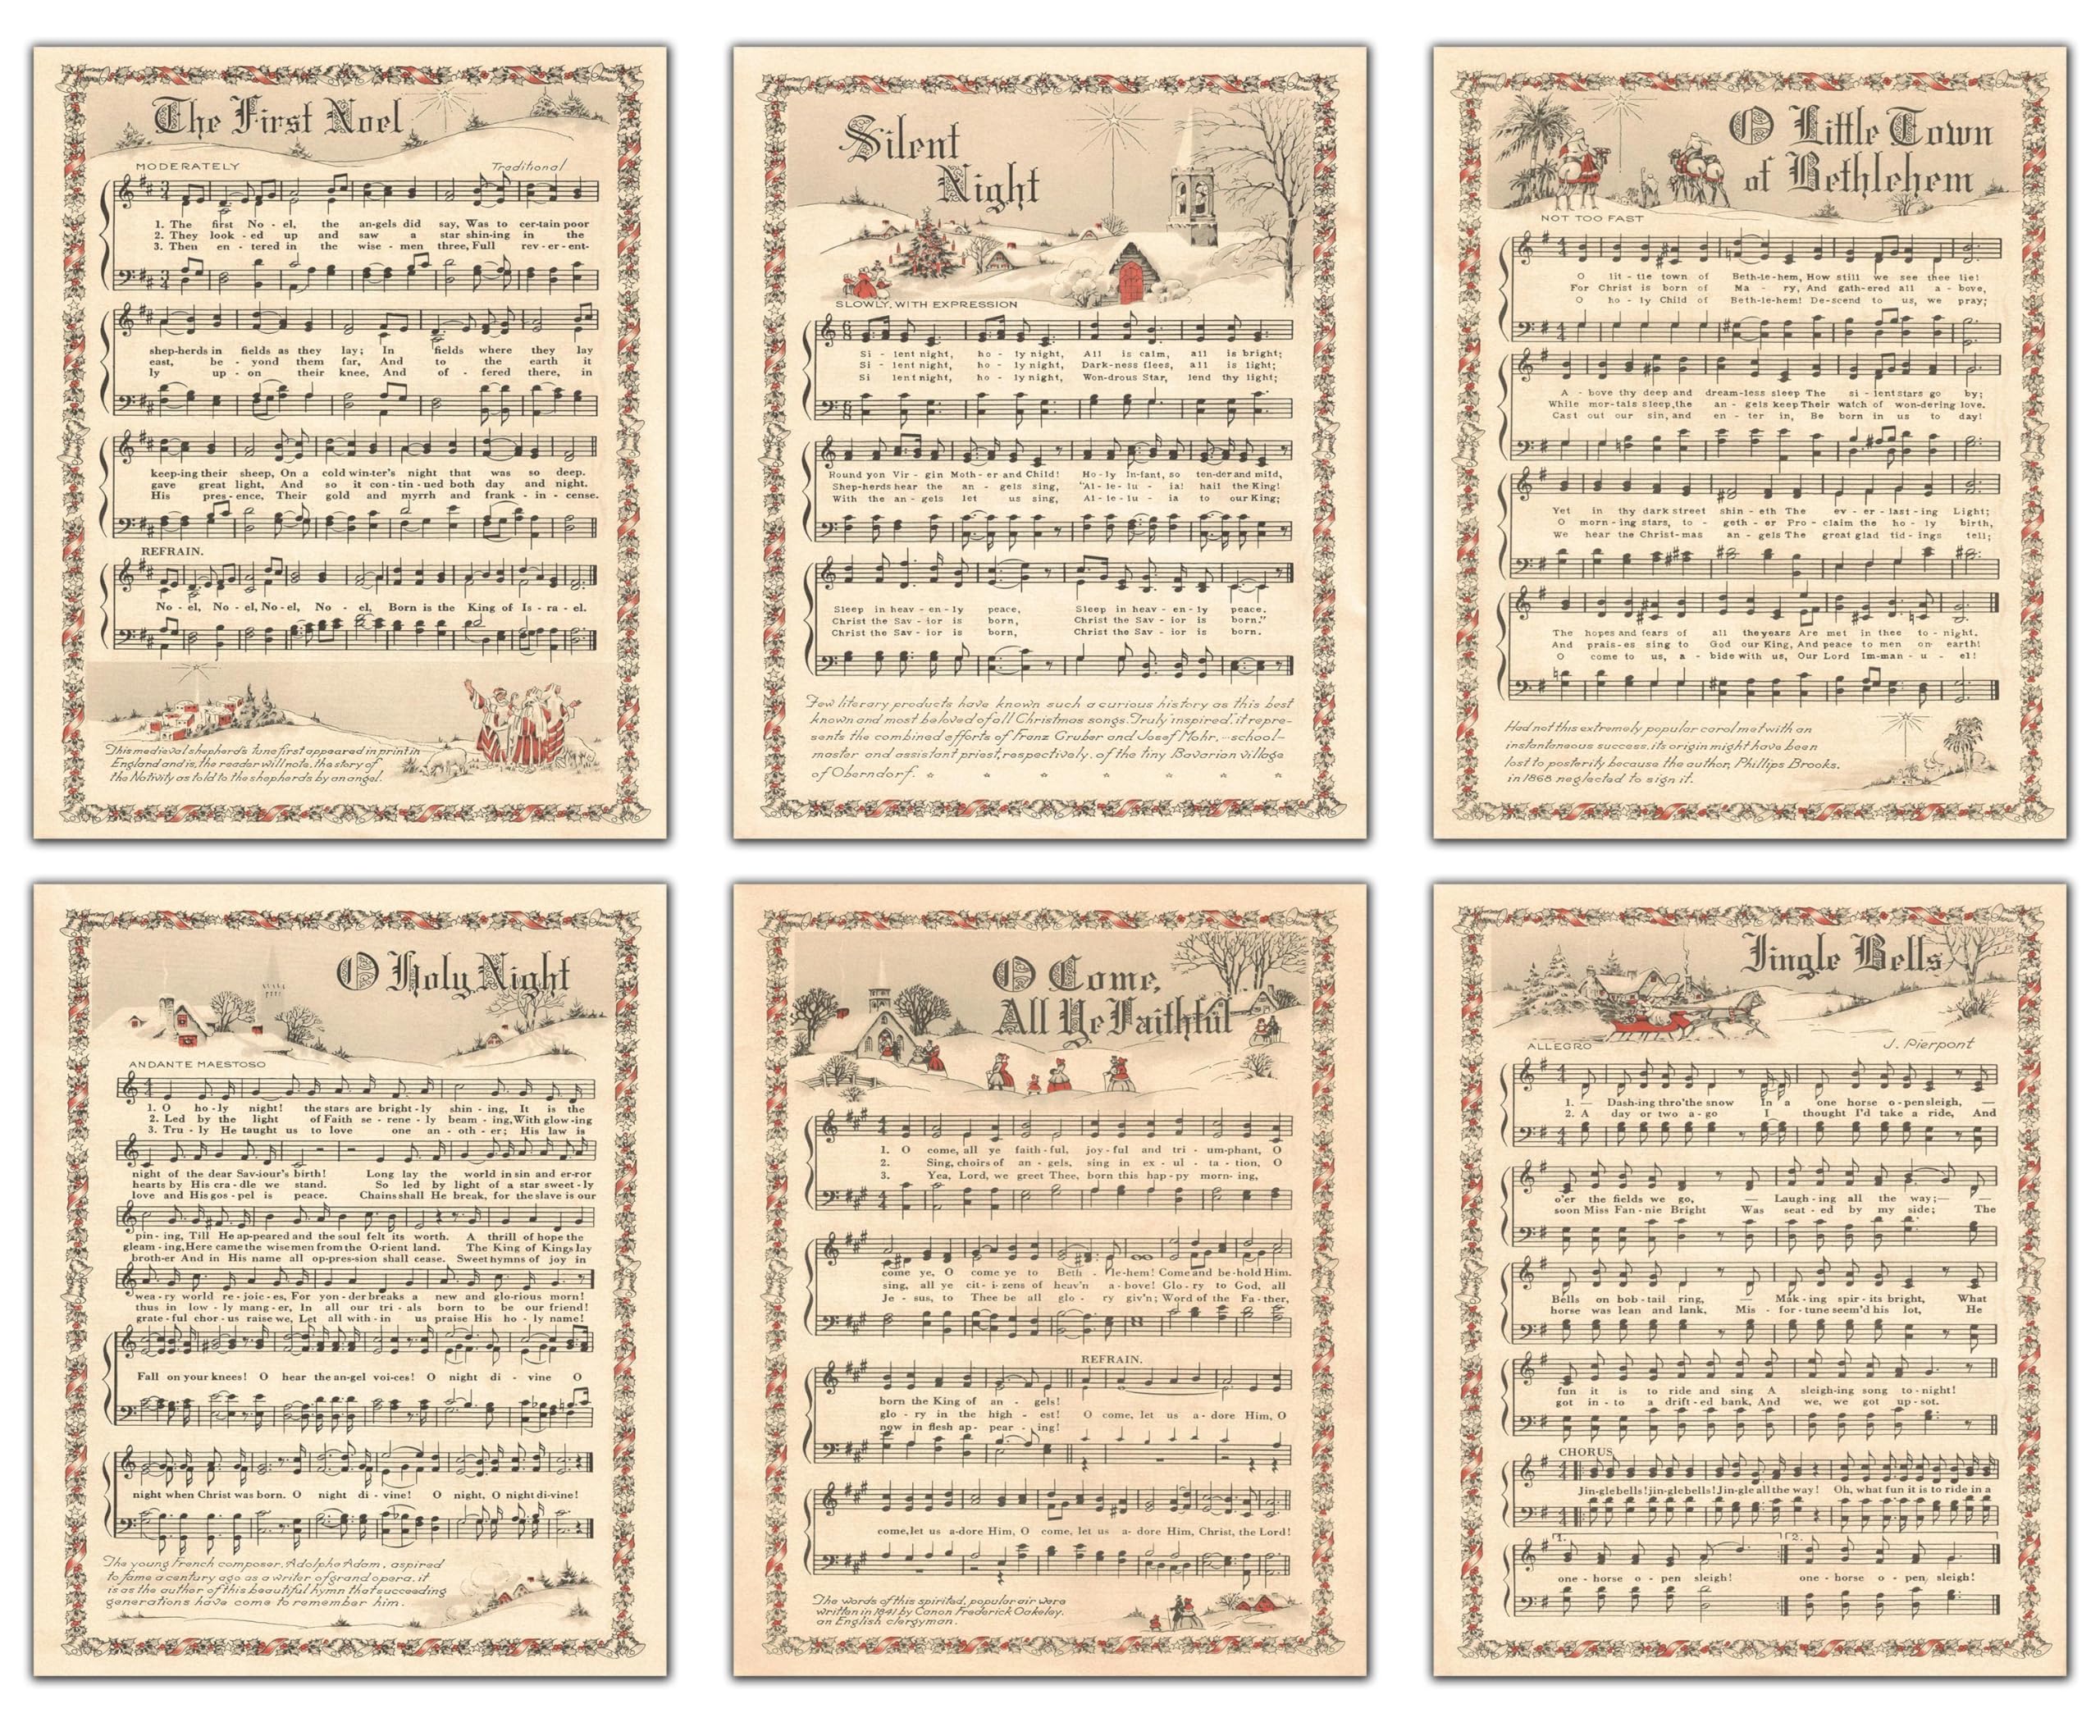 The First Noel
MODERATELY Traditional
1. The first No - el, the an-gels did say, Was to cer-tain poor
2. They look - ed up and saw a star shin-ing in the
3. Then en - tered in the wise - men three, Full rev - er - ent-
shep-herds in fields as they lay; In fields where they lay
east, be - yond them far, And to the earth it
ly up - on their knee, And of - fered there, in
keep-ing their sheep, On a cold win-ter's night that was so deep.
gave great light, And so it con - tin - ued both day and night.
His pres - ence, Their gold and myrrh and frank - in - cense.
REFRAIN.
No - el, No - el, No - el, No - el, Born is the King of Is - ra - el.
This medieval shepherds tune first appeared in print in
England and is, the reader will note, the story of
the Nativity as told to the shepherds by an angel.
Silent
Night
SLOWLY, WITH EXPRESSION
Si - lent night, ho - ly night, All is calm, all is bright;
Si - lent night, ho - ly night, Dark-ness flees, all is light;
Si lent night, ho - ly night, Won-drous Star, lend thy light;
Round yon Vir - gin Moth - er and Child! Ho - ly In-fant, so ten-der and mild,
Shep-herds hear the an - gels sing, "Al - le - lu - ia! hail the King!
With the an - gels let us sing, Al - le - lu - ia to our King;
Sleep in heav - en - ly peace, Sleep in heav - en - ly peace.
Christ the Sav - ior is born, Christ the Sav - ior is born."
Christ the Sav - ior is born, Christ the Sav - ior is born.
Few literary products have known such a curious history as this best
known and most beloved of all Christmas songs. Truly "inspired," it repre-
sents the combined efforts of Franz Gruber and Josef Mohr, -- school-
master and assistant priest, respectively, of the tiny Bavarian village
of Oberndorf.
O Little Town
of Bethlehem
NOT TOO FAST
O lit - tle town of Beth-le-hem, How still we see thee lie!
For Christ is born of Ma - ry, And gath-ered all a - bove,
O ho - ly Child of Beth-le-hem! De-scend to us, we pray;
A - bove thy deep and dream-less sleep The si - lent stars go by;
While mor-tals sleep, the an - gels keep Their watch of won-dering love.
Cast out our sin, and en - ter in, Be born in us to day!
Yet in thy dark street shin - eth The ev - er - last - ing Light;
O morn - ing stars, to - geth - er Pro - claim the ho - ly birth,
We hear the Christ-mas an - gels The great glad tid - ings tell;
The hopes and fears of all the years Are met in thee to - night.
And prais - es sing to God our King, And peace to men on earth!
O come to us, a - bide with us, Our Lord Im-man - u - el!
Had not this extremely popular carol met with an
instantaneous success, its origin might have been
lost to posterity because the author, Phillips Brooks,
in 1868 neglected to sign it.
O Holy Night
ANDANTE MAESTOSO
1. O ho - ly night! the stars are bright - ly shin - ing, It is the
2. Led by the light of Faith se - rene - ly beam - ing, With glow - ing
3. Tru - ly He taught us to love one an - oth - er; His law is
night of the dear Sav-iour's birth! Long lay the world in sin and er-ror
hearts by His cra - dle we stand. So led by light of a star sweet - ly
love and His gos - pel is peace. Chains shall He break, for the slave is our
pin - ing, Till He ap-peared and the soul felt its worth. A thrill of hope the
gleam - ing, Here came the wise men from the O-rient land. The King of Kings lay
broth-er And in His name all op-pres-sion shall cease. Sweet hymns of joy in
wea - ry world re - joic - es, For yon - der breaks a new and glo-rious morn!
thus in low - ly mang - er, In all our tri - als born to be our friend!
grate - ful chor - us raise we, Let all with - in us praise His ho - ly name!
Fall on your knees! O hear the an-gel voi-ces! O night di - vine O
night when Christ was born. O night di - vine! O night, O night di-vine!
The young French composer, Adolphe Adam, aspired
to fame a century ago as a writer of grand opera. it
is as the author of this beautiful hymn that succeeding
generations have come to remember him.
O Come,
All Ye Faithful
1. O come, all ye faith - ful, joy - ful and tri - um-phant, O
2. Sing, choirs of an - gels, sing in ex - ul - ta - tion, O
3. Yea, Lord, we greet Thee, born this hap - py morn - ing,
come ye, O come ye to Beth - le-hem! Come and be-hold Him.
sing, all ye cit - i- zens of heav'n a - bove! Glo - ry to God, all
Je - sus, to Thee be all glo - ry giv'n; Word of the Fa - ther,
REFRAIN.
born the King of an - gels!
glo - ry in the high - est! O come, let us a - dore Him, O
now in flesh ap - pear - ing!
come, let us a-dore Him, O come, let us a - dore Him, Christ, the Lord!
The words of this spirited, popular air were
written in 1841 by Canon Frederick Oakeley,
an English clergyman.
Jingle Bells
ALLEGRO J. Pierpont
1. — Dash-ing thro' the snow In a one horse o - pen sleigh, —
2. A day or two a - go I thought I'd take a ride, And
o'er the fields we go, — Laugh - ing all the way; — —
soon Miss Fan - nie Bright Was seat - ed by my side; The
Bells on bob - tail ring, — Mak - ing spir - its bright, What
horse was lean and lank, Mis - for - tune seem'd his lot, He
fun it is to ride and sing A sleigh-ing song to - night!
got in - to a drift - ed bank, And we, we got up - sot.
CHORUS.
Jin-gle bells! jin-gle bells! Jin-gle all the way! Oh, what fun it is to ride in a
1. 2.
one - horse o - pen sleigh! one - horse o - pen, sleigh!